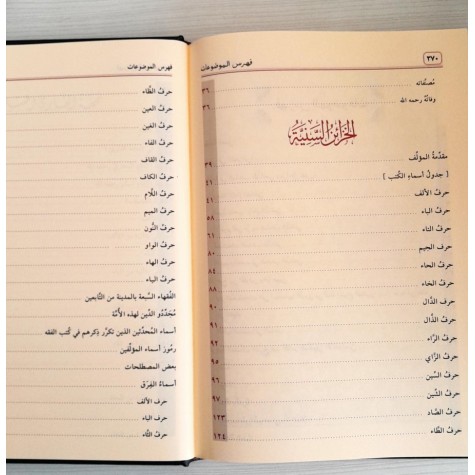 ٣٧٠
فهرس الموضوعات
مُصنَّفاته ٣٦
وفاتُه رحمه الله ٣٦
الخزائن السَّنِيَّة
مقدّمةُ المؤلِّف ٣٩
[ جدولُ أسماءِ الكُتب ] ٤١
حرفُ الألف ٤١
حرفُ الباء ٥٨
حرفُ التاء ٦١
حرفُ الجيم ٨٠
حرفُ الحاء ٨٤
حرفُ الخاء ٨٨
حرفُ الدَّال ٩٠
حرفُ الذَّال ٩١
حرفُ الرَّاء ٩٢
حرفُ الزَّاي ٩٥
حرفُ السِّين ٩٥
حرفُ الشِّين ٩٧
حرفُ الصَّاد ١٢٣
حرفُ الطَّاء ١٢٤
فهرس الموضوعات
حرفُ الظَّاء
حرفُ العين
حرفُ الغين
حرفُ الفاء
حرفُ القاف
حرفُ الكاف
حرفُ اللَّام
حرفُ الميم
حرفُ النُّون
حرفُ الواو
حرفُ الهاء
حرفُ الياء
الفقهاء السَّبعة بالمدينة من التَّابعين
مُجدِّدُو الدِّين لهذه الأُمَّة
أسماء المُحدِّثين الذين تكرَّر ذِكرهم في كُتب الفقه
رموز أسماء المؤلِّفين
بعض المصطلحات
أسماءُ الفِرَق
حرفُ الألف
حرف الباء
حرفُ التَّاء